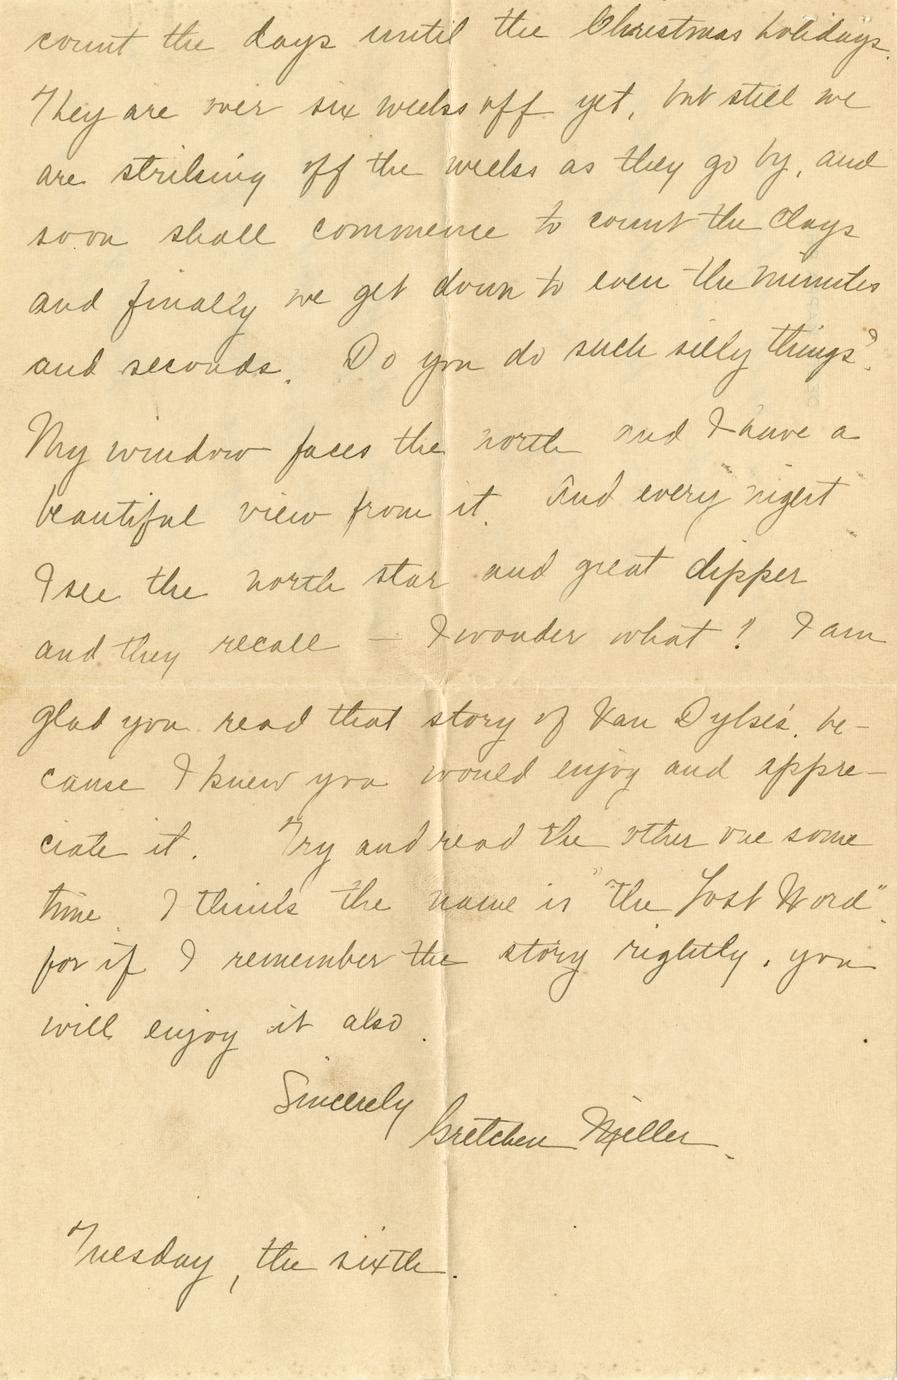 count the days until the Christmas holidays.
They are over six weeks off yet, but still we
are striking off the weeks as they go by, and
soon shall commence to count the days
and finally we get down to even the minutes
and seconds. Do you do such silly things?
My window faces the north and I have a
beautiful view from it. And every night
I see the north star and great dipper
and they recall — I wonder what! I am
glad you read that story of Van Dyke's, be-
cause I knew you would enjoy and appre-
ciate it. Try and read the other one some
time. I think the name is "The Lost Word"
for if I remember the story rightly, you
will enjoy it also.
Sincerely
Gretchen Miller.
Tuesday, the sixth.